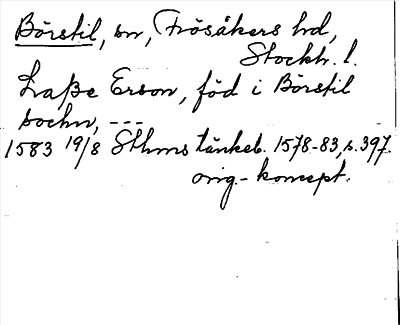 Börstil, sn, Frösåkers hd,
Stockh. l.
Laße Erson, föd i Börstil
sochn, ---
1583 19/8 Sthms tänkeb. 1578-83, s. 397.
orig.-koncept.